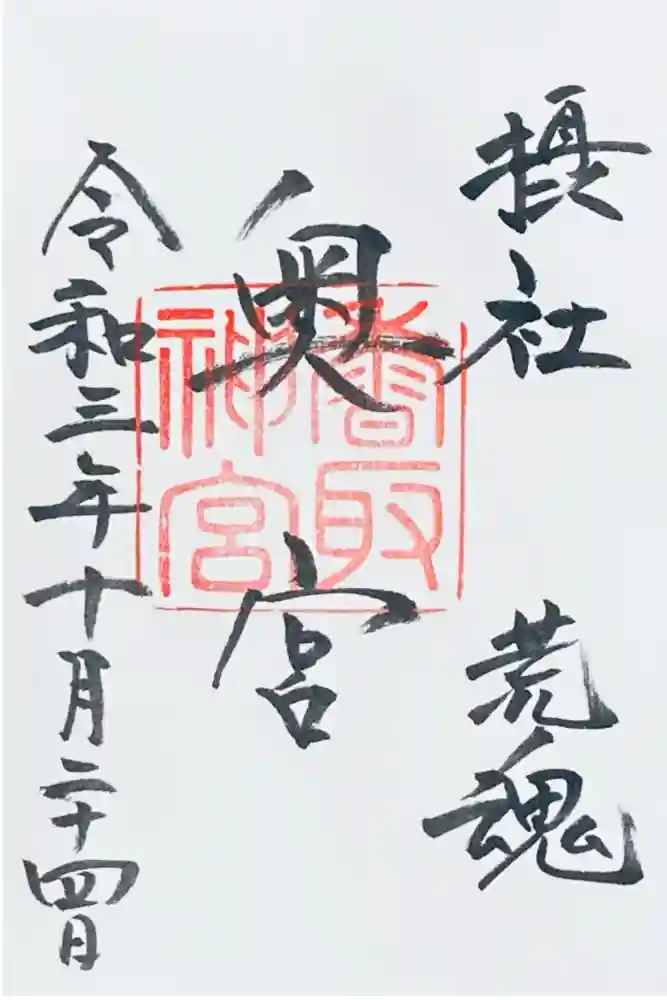 摂社 荒魂
奥宮
香取
神宮
令和三年十月二十四日